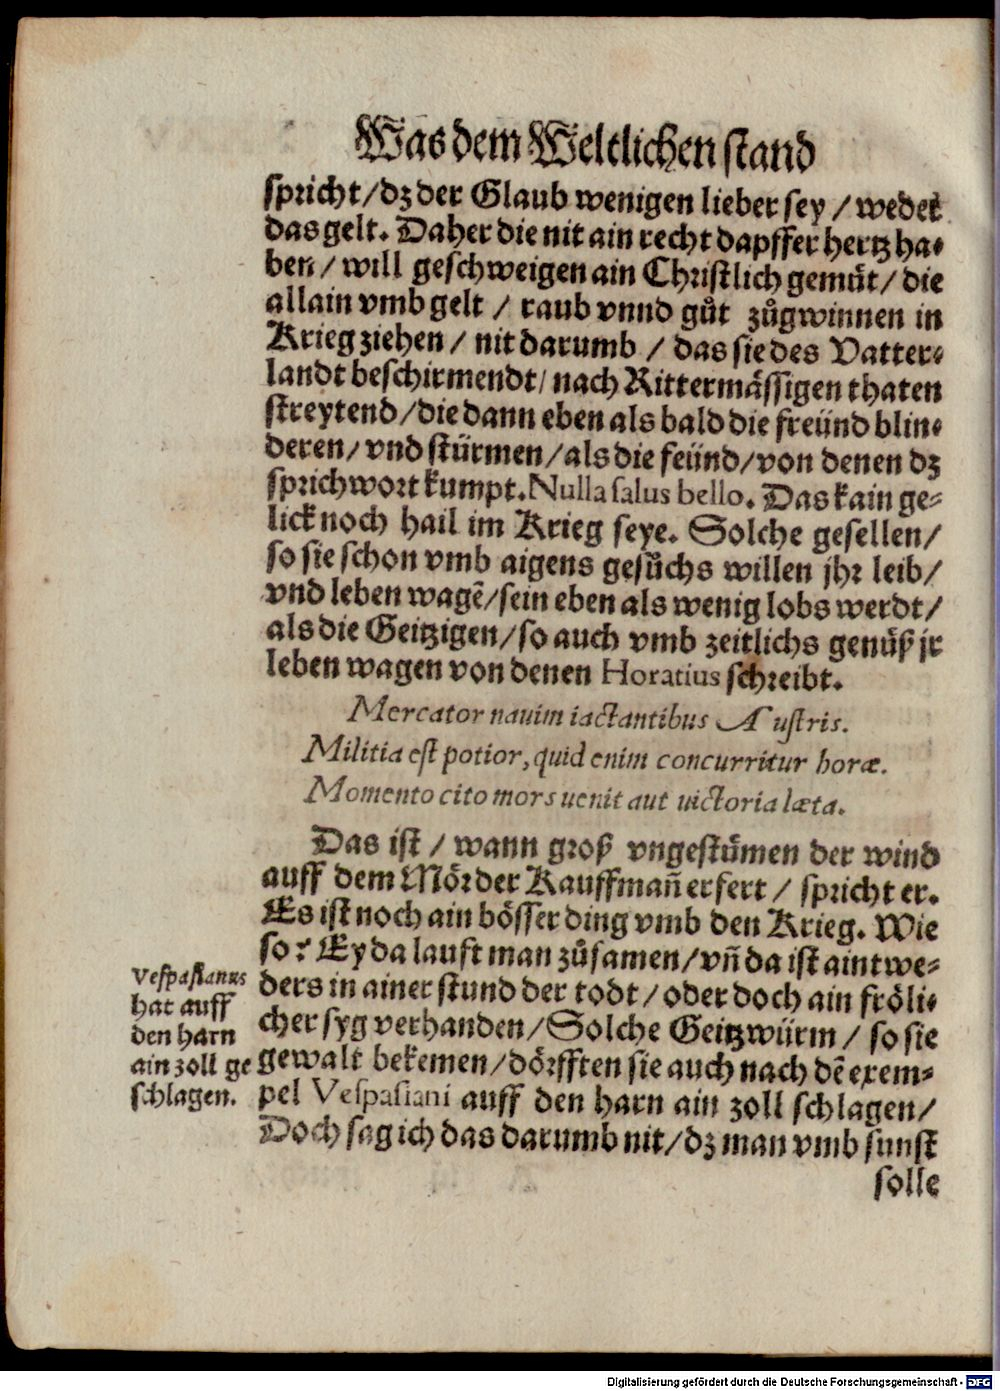 Was dem Weltlichen stand
spricht/dz der Glaub wenigen lieber sey/weder
das gelt. Daher die nit ain recht dapffer hertz ha⸗
ben/will geschweigen ain Christlich gemüt/die
allain vmb gelt/raub vnnd gůt zůgwinnen in
Krieg ziehen/nit darumb/das sie des Vatter⸗
landt beschirmendt/nach Rittermässigen thaten
streytend/die dann eben als bald die freünd blin⸗
deren/vnd stürmen/als die feünd/von denen dz
sprichwort kumpt. Nulla salus bello. Das kain ge⸗
lick noch hail im Krieg seye. Solche gesellen/
so sie schon vmb aigens gesůchs willen jhr leib/
vnd leben wagē/sein eben als wenig lobs werdt/
als die Geitzigen/so auch vmb zeitlichs genüß jr
leben wagen von denen Horatius schreibt.
Mercator nauim iactantibus Austris.
Militia est potior, quid enim concurritur horæ.
Momento cito mors uenit aut uictoria læta.
Das ist/wann groß vngestümen der wind
auff dem Mör der Kauffmañ erfert/spricht er.
Es ist noch ain bösser ding vmb den Krieg. Wie
so? Ey da lauft man zůsamen/vñ da ist aintwe⸗
ders in ainer stund der todt/oder doch ain fröli⸗
cher syg verhanden/Solche Geitzwürm/so sie
gewalt bekemen/dörfften sie auch nach dē exem⸗
pel Vespasiani auff den harn ain zoll schlagen/
Doch sag ich das darumb nit/dz man vmb sunst
solle
Vespasianus
hat auff
den harn
ain zoll ge
schlagen.
Digitalisierung gefördert durch die Deutsche Forschungsgemeinschaft - DFG